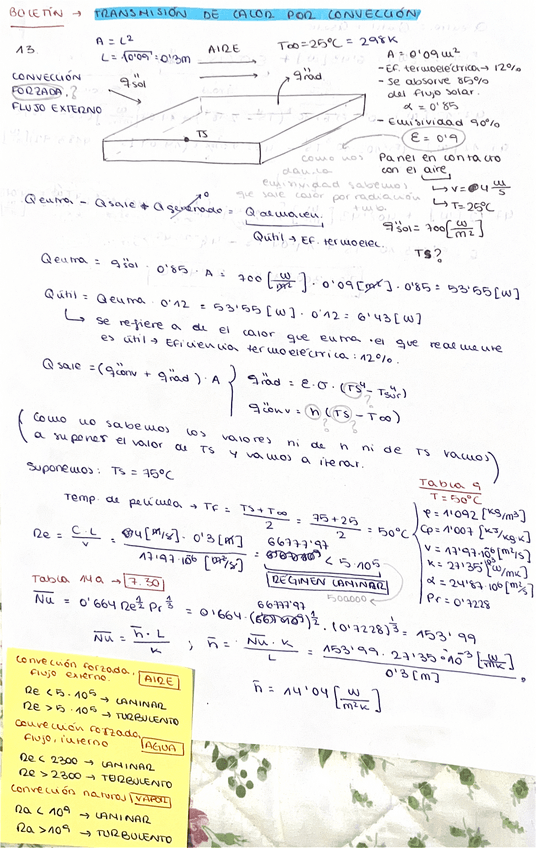 BOLETÍN → TRANSMISIÓN DE CALOR POR CONVECCIÓN
13.
A = L²
L = √0'09 = 0'3m
AIRE
T∞ = 25ºC = 298K
CONVECCIÓN
FORZADA.?
FLUJO EXTERNO
q''sol
q''rad
TS
A = 0'09 m²
- Ef. termoeléctrica → 12%
- Se absorve 85%
del flujo solar.
α = 0'85
- Emisividad 90%
ε = 0'9
como nos
dan la
emisividad sabemos
que sale calor por radiación
Panel en contacto
con el aire
→ v = 4 m/s
→ T = 25ºC
q''sol = 700 [W/m²]
TS?
Qentra - Qsale + Qgenerado = Qalmacen.
0
Qútil → Ef. termoelec.
Qentra = q''sol · 0'85 · A = 700 [W/m²] · 0'09 [m²] · 0'85 = 53'55 [W]
Qútil = Qentra · 0'12 = 53'55 [W] · 0'12 = 6'43 [W]
↳ se refiere a de el calor que entra el que realmente
es útil → Eficiencia termoeléctrica: 12%.
Qsale = (q''conv + q''rad) · A
q''rad = ε · σ · (TS⁴ - Tsur⁴)
q''conv = h (TS - T∞)
? ?
(Como no sabemos los valores ni de h ni de TS vamos
a suponer el valor de TS y vamos a iterar.)
Suponemos: TS = 75ºC
Temp. de película → TF = (TS + T∞)/2 = (75 + 25)/2 = 50ºC
Tabla 9
T = 50ºC
ρ = 1'092 [kg/m³]
Cp = 1'007 [kJ/kg·K]
ν = 17'97·10⁻⁶ [m²/s]
k = 27'35·10⁻³ [W/mK]
α = 24'87·10⁻⁶ [m²/s]
Pr = 0'7228
Re = C · L / ν = 4 [m/s] · 0'3 [m] / 17'97·10⁻⁶ [m²/s] = 66777'97 < 5·10⁵
500000
RÉGIMEN LAMINAR
Tabla 14a → 7.30
Nu = 0'664 Re^1/2 Pr^1/3 = 0'664 · (66777'97)^1/2 · (0'7228)^1/3 = 153'99
Nu = h · L / k ; h = Nu · k / L = 153'99 · 27'35·10⁻³ [W/mK] / 0'3 [m]
h = 14'04 [W/m²K]
Convección forzada,
flujo externo. AIRE
Re < 5·10⁵ → LAMINAR
Re > 5·10⁵ → TURBULENTO
Convección forzada,
flujo, interno AGUA
Re < 2300 → LAMINAR
Re > 2300 → TURBULENTO
Convección natural VAPOR
Ra < 10⁹ → LAMINAR
Ra > 10⁹ → TURBULENTO